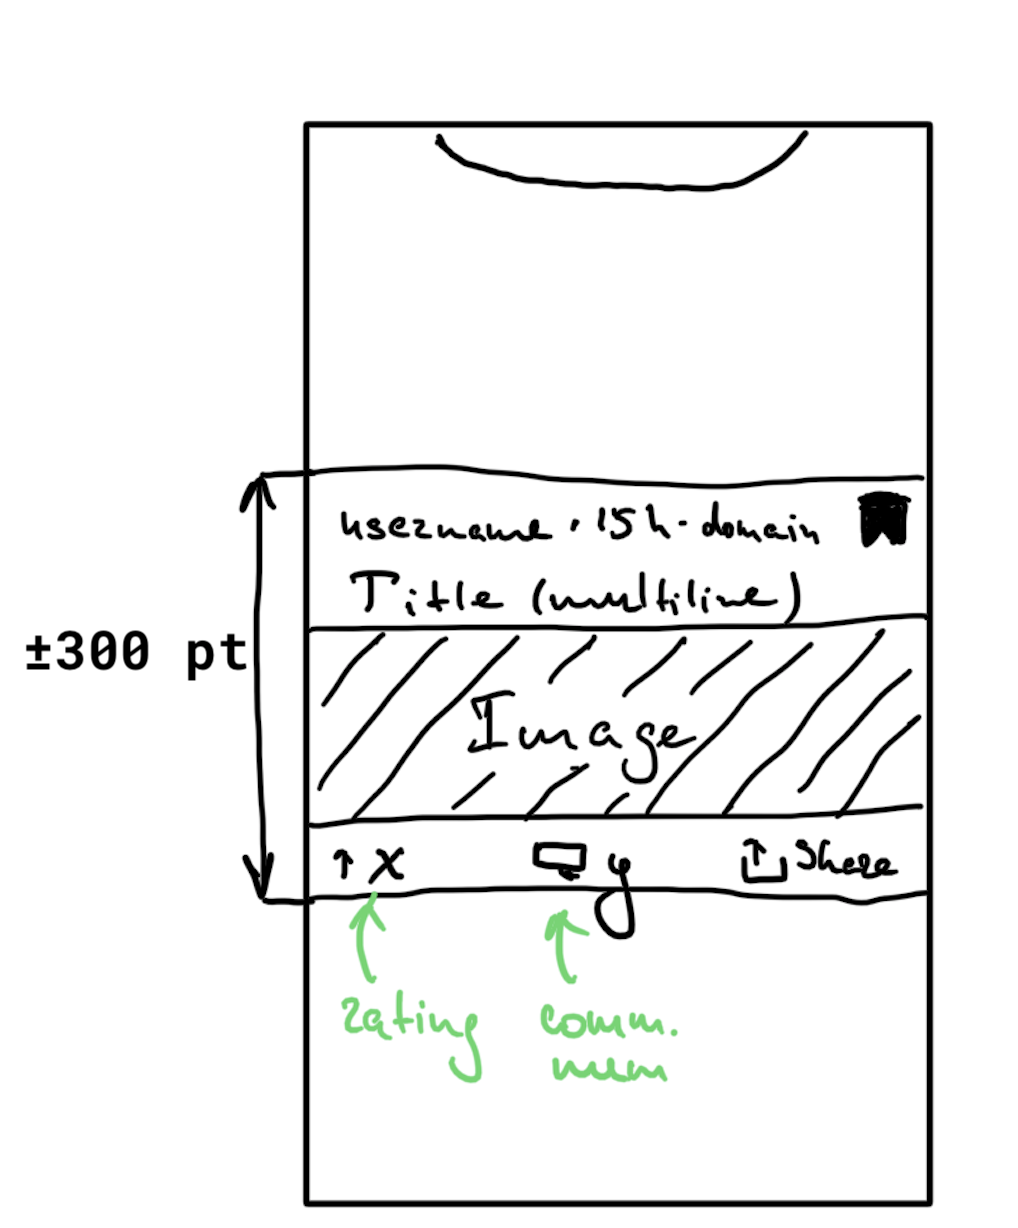 username · 15h · domain
Title (multiline)
±300 pt
Image
↑ X
y
Share
rating
comm.
num